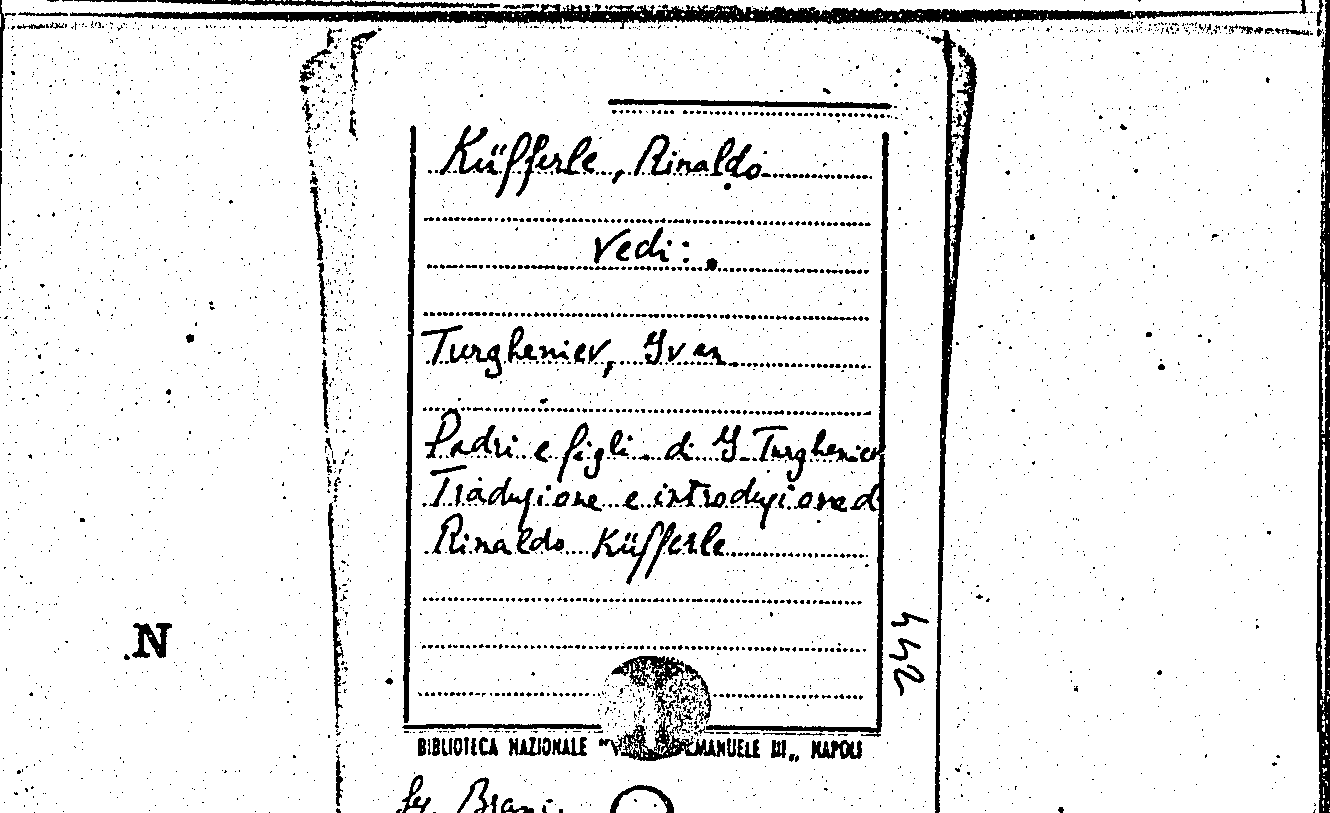 Küfferle, Rinaldo
Vedi:
Turgheniev, Yvan
Padri e figli. di Y. Turgheniev
Traduzione e introduzione d
Rinaldo Küfferle
442
N
BIBLIOTECA NAZIONALE "V EMANUELE III„ NAPOLI